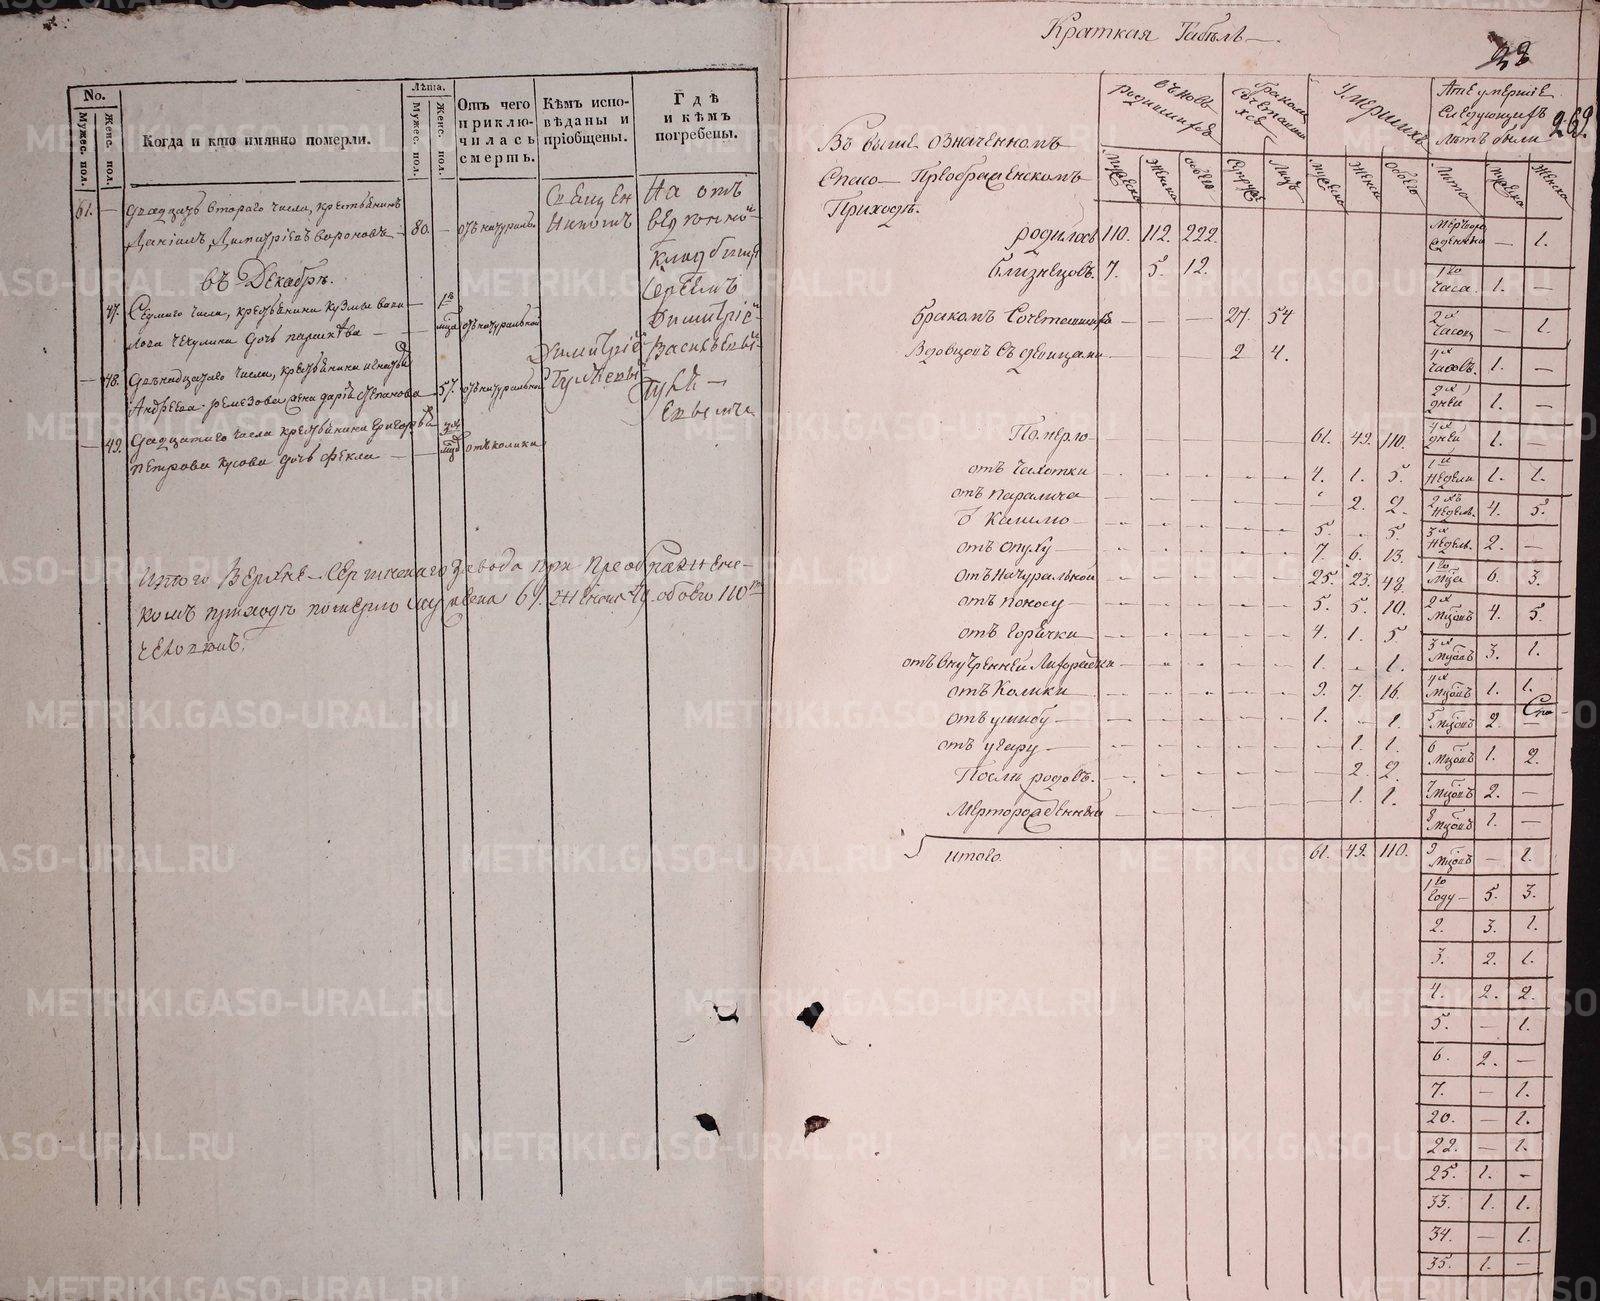 No.
Мужес. пол.
Женс. пол.
Когда и кто имянно померли.
Лѣта.
Мужес. пол.
Женс. пол.
Отъ чего
приклю-
чилась
смерть.
Кѣмъ испо-
вѣданы и
пріобщены.
Гдѣ
и кѣмъ
погребены.
61. — двадцать втораго числа, крестьянинъ
Даніилъ Димитріевъ Вороновъ — 80. —
въ Декабрѣ.
47. Седмаго числа, крестьянина Кузмы
дочь
48. двѣнадцатаго числа, крестьянина Игнатья
Андреева Ремезова жена Дарія Степанова 57. отъ натуральной
49. двадцатаго числа крестьянина Григорья
Петрова Кусова дочь Фекла — отъ колики
Священ
никомъ
Димитріе
На отъ
веденно
кладбищѣ
Сергіемъ
Димитріе
Итого Верхне-Сергинскаго завода при Преображенс-
комъ приходѣ померло мужеска 61. женска 49. обоего 110
человѣкъ.
Краткая Табель —.
28
269.
Въ выше означенномъ
Спасо — Преображенскомъ
Приходѣ.
вновь
родившихся
бракомъ
сочетавши
хся
Умершихъ
А
умершіе
Слѣдующихъ
лѣтъ были
Мужеска Женска обоего Лицъ Мужеска Женска Обоего Лѣта Мужеска Женска
родилось 110. 112. 222.
близнецовъ. 7. 5. 12.
бракомъ Сочеталось — — — 27. 54
Вдовцовъ съ девицами — — — 2 4.
Померло — 61. 49. 110.
отъ Чахотки 4. 1. 5.
отъ паралича 2. 2.
5. 5.
отъ опуху 7. 6. 13.
отъ Натуральной 25. 23. 48.
отъ поносу 5. 5. 10.
отъ Горячки 4. 1. 5
отъ Внутренней Лихорадки 1. 1.
отъ Колики 9. 7. 16.
отъ ушибу 1. 1.
отъ угару 1. 1.
Послѣ родовъ. 2. 2.
Мерторожденный 1. 1.
итого. 61. 49. 110.
— 1.
1го часа. 1. —
2х Часовъ — 1.
4х часовъ. 1. —
2х дней 1. —
4х дней 1. —
1й недели 1. 1.
2хъ недель. 4. 5.
3х недель. 2. —
1го м͠ца 6. 3.
2х 4. 5.
3х 3. 1.
4х 1. 1.
5 2. —
6 1. 2.
7 2. —
8 1. —
9 — 1.
1го Году — 5. 3.
2. 3. 1.
3. 2. 1.
4. 2. 2.
5. — 1.
6. 2. —
7. — 1.
20. — 1.
22. — 1.
25. 1. —
33. 1. 1.
34. — 1.
35. 1. —
METRIKI.GASO-URAL.RU